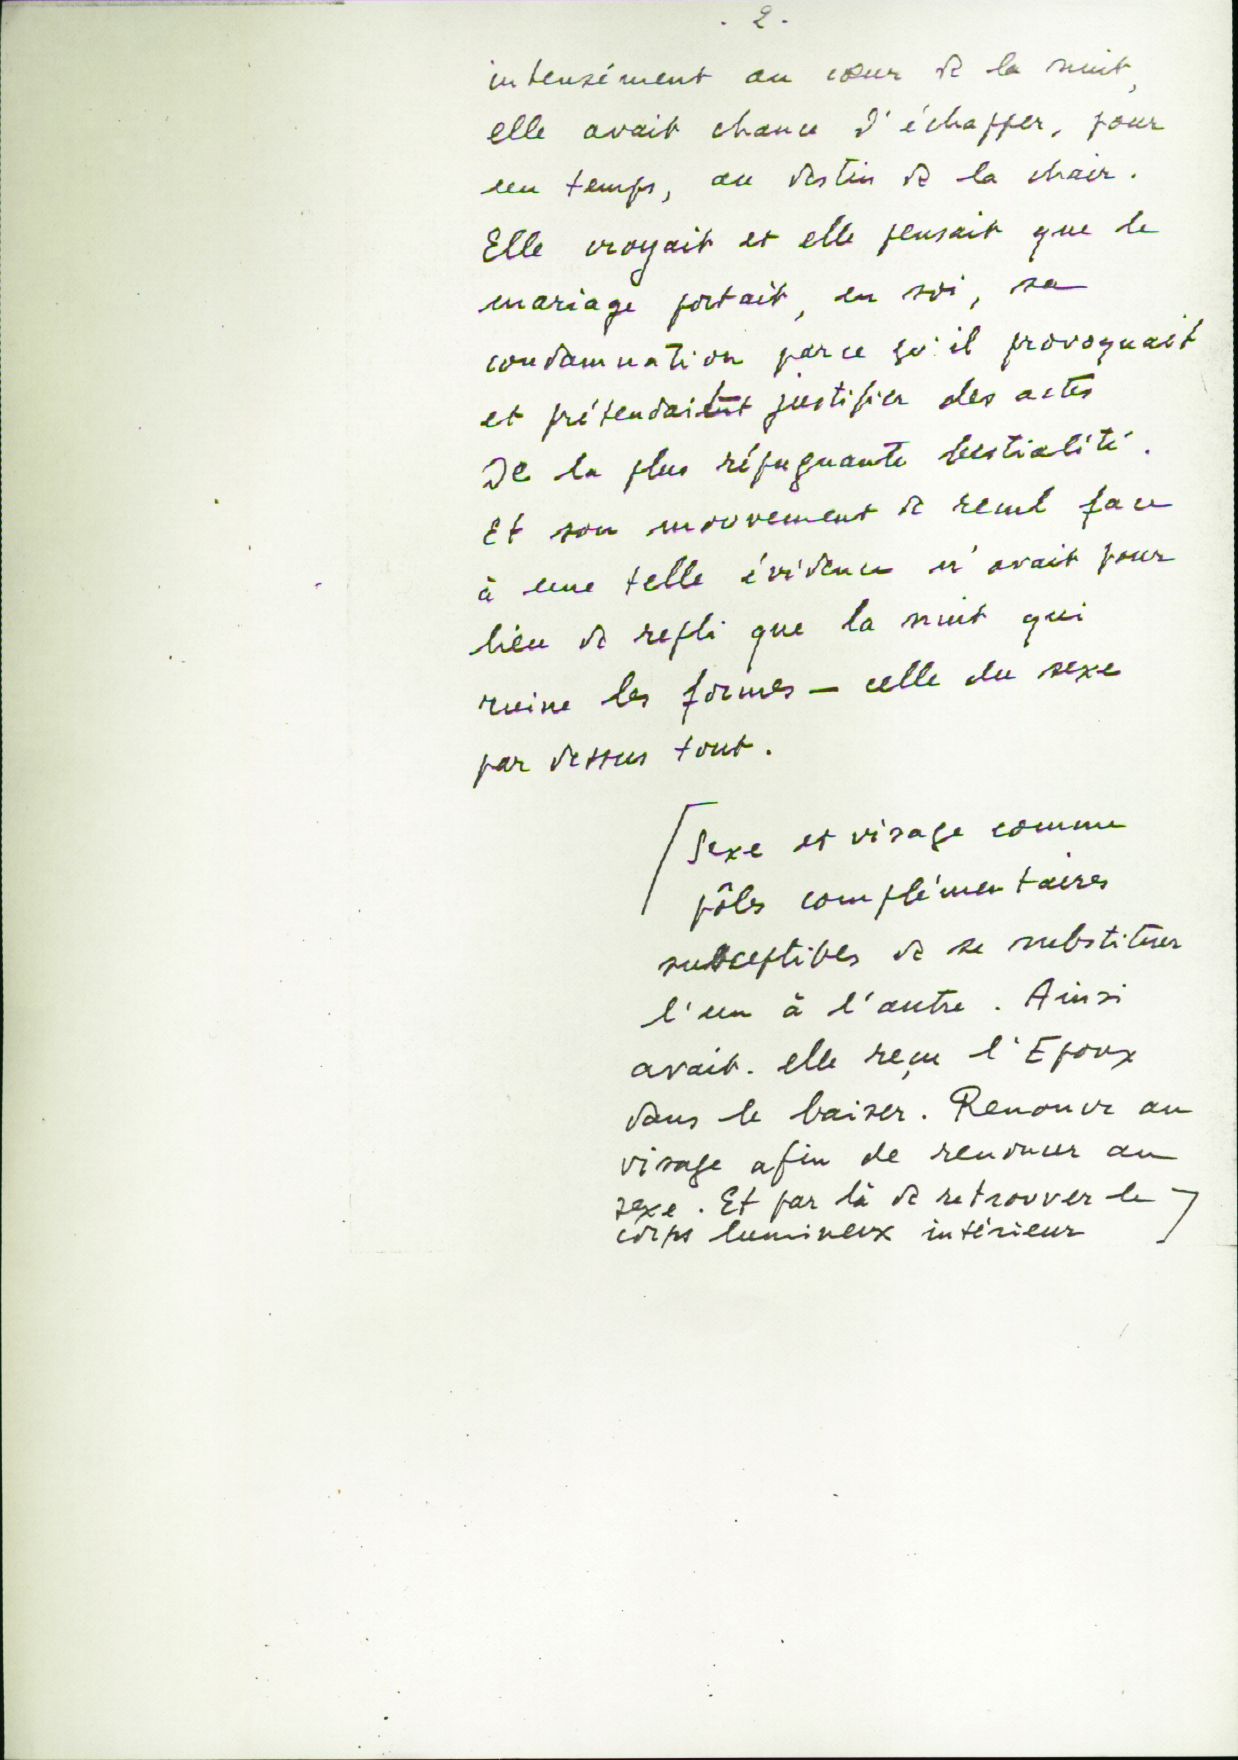 . 2 .
intensément au cœur de la nuit,
elle avait chance d'échapper, pour
un temps, au destin de la chair.
Elle croyait et elle pensait que le
mariage portait, en soi, sa
condamnation parce qu'il provoquait
et prétendait justifier des actes
de la plus répugnante bestialité.
Et son mouvement de recul face
à une telle évidence n'avait pour
lieu de repli que la nuit qui
ruine les formes — celle du sexe
par dessus tout.
[Sexe et visage comme
pôles complémentaires
susceptibles de se substituer
l'un à l'autre. Ainsi
avait-elle reçu l'Epoux
dans le baiser. Renoncer au
visage afin de renoncer au
sexe. Et par là de retrouver le
corps lumineux intérieur]